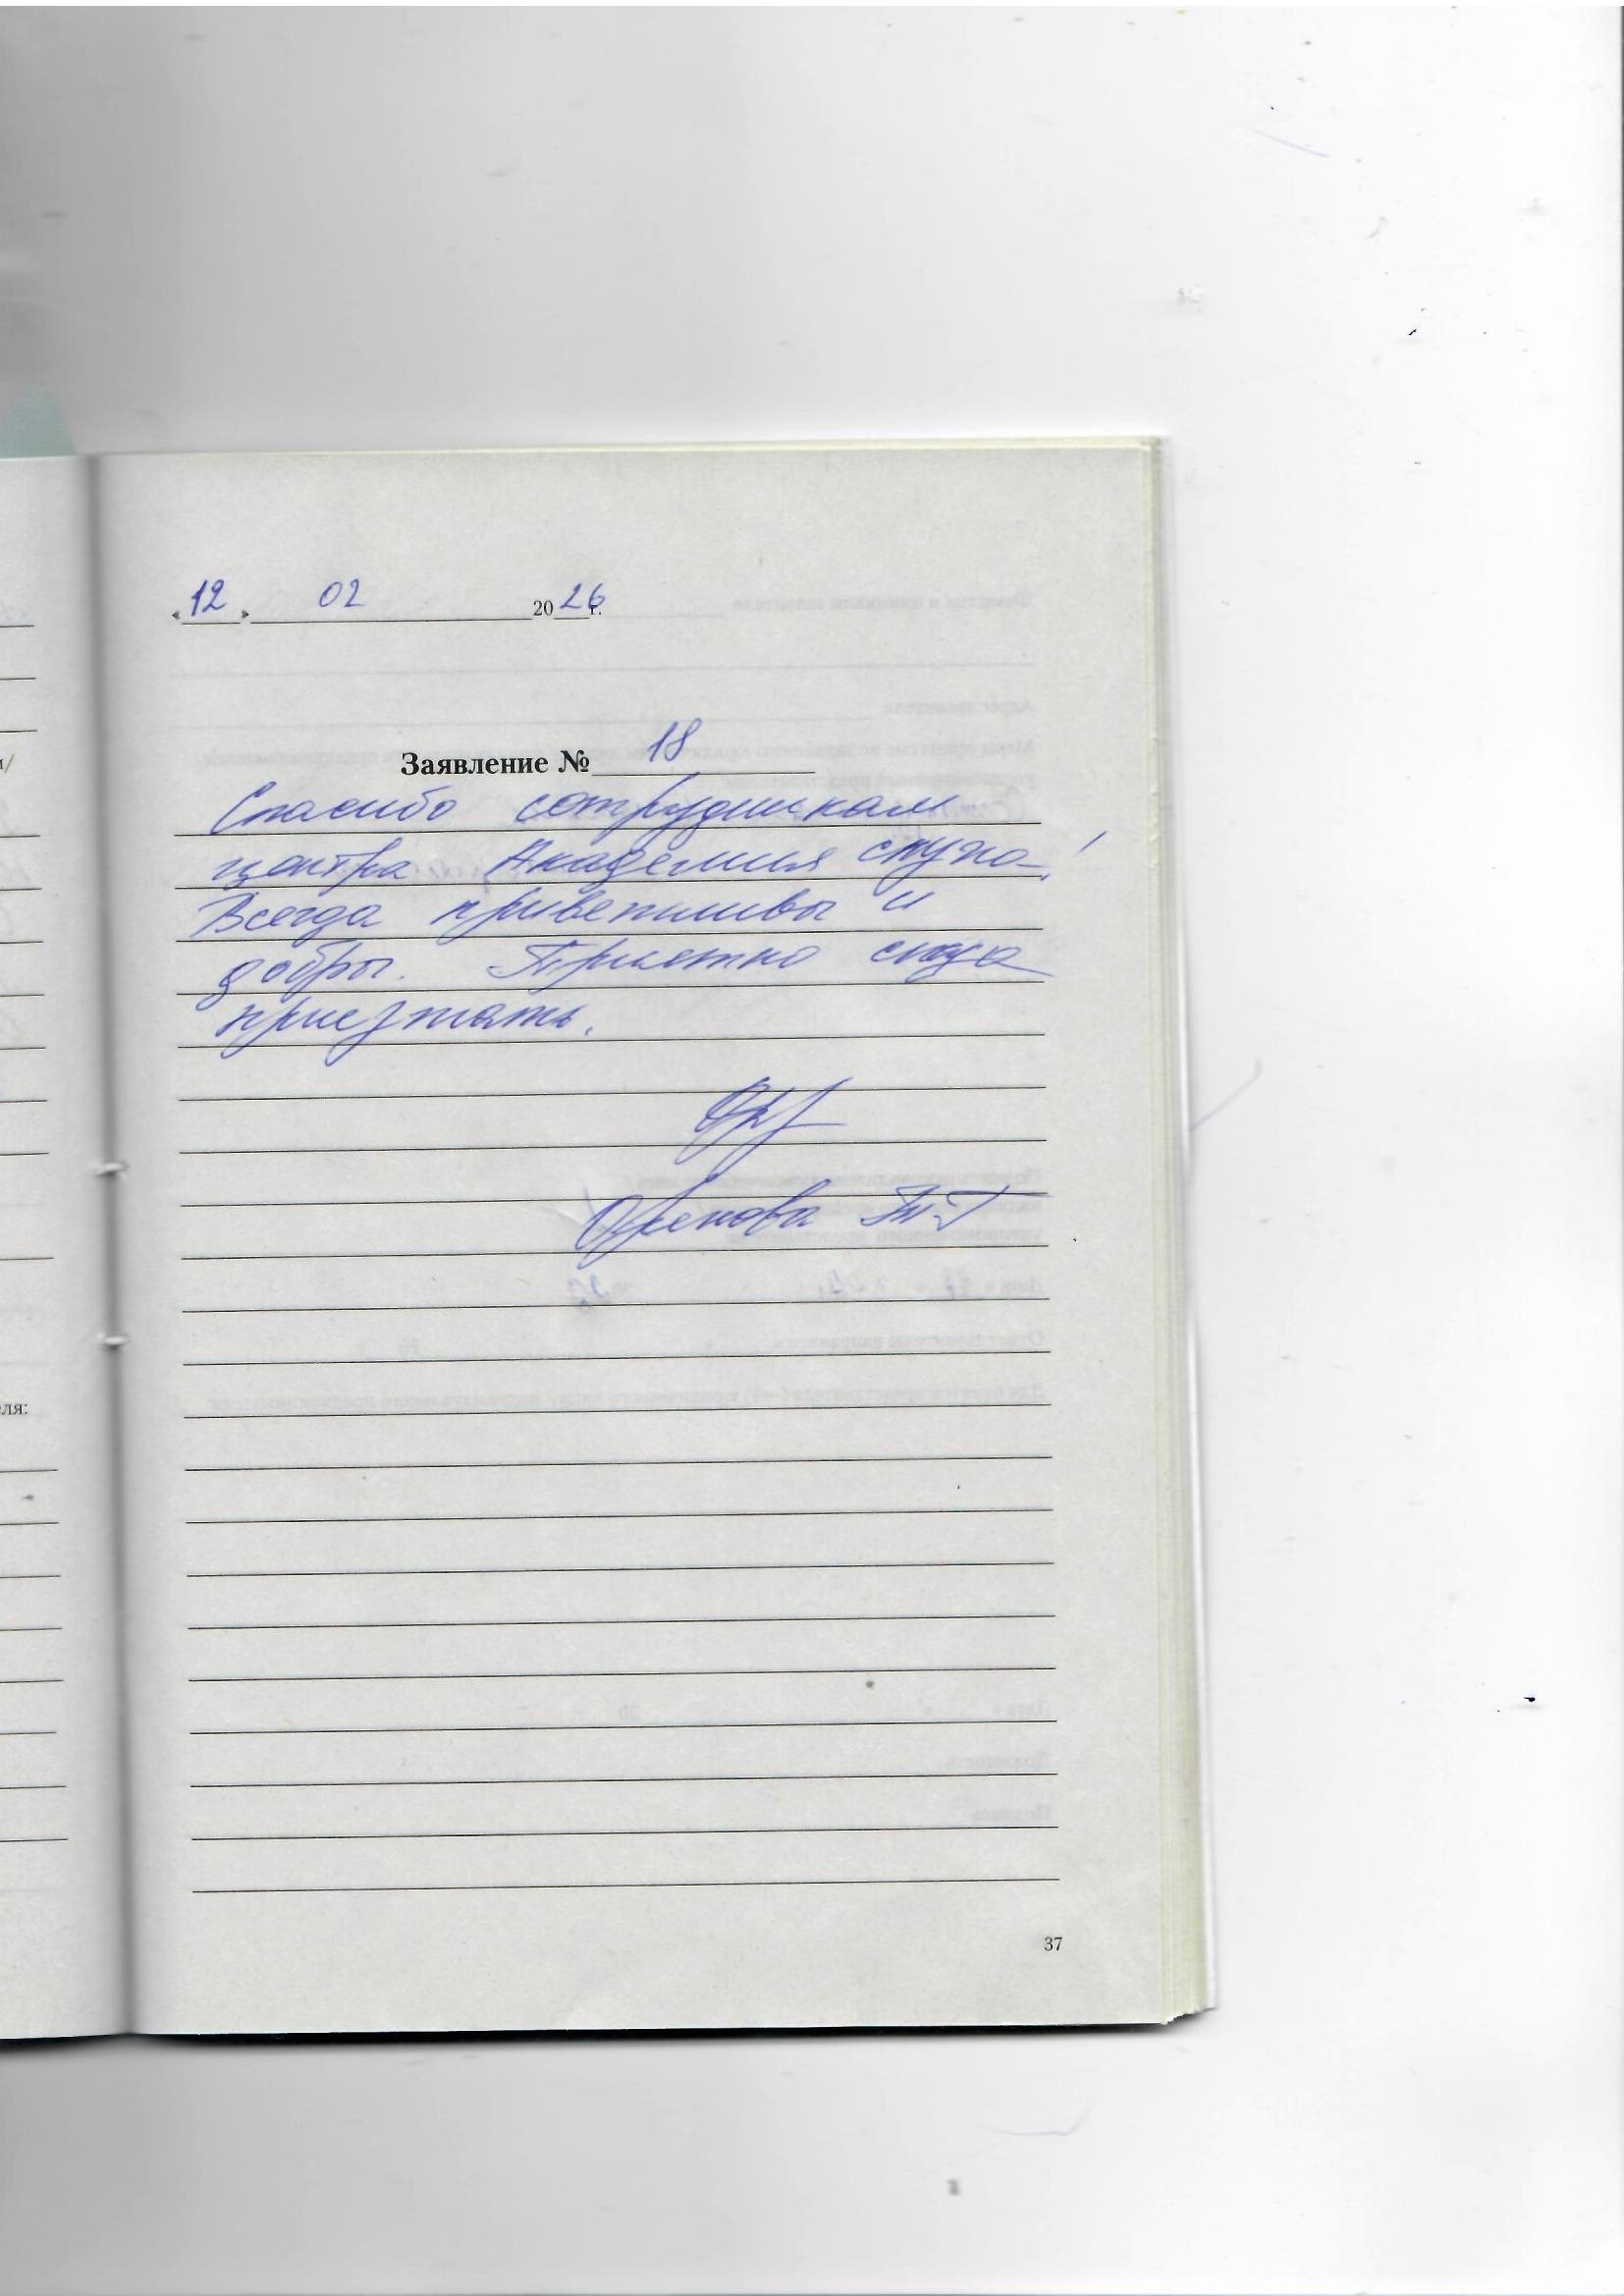 «12» 02 2026г.
Заявление № 18
Спасибо сотрудникам
центра Академия слуха!
Всегда приветливы и
добры. Приятно сюда
приезжать.
Т.Г
37
ля: